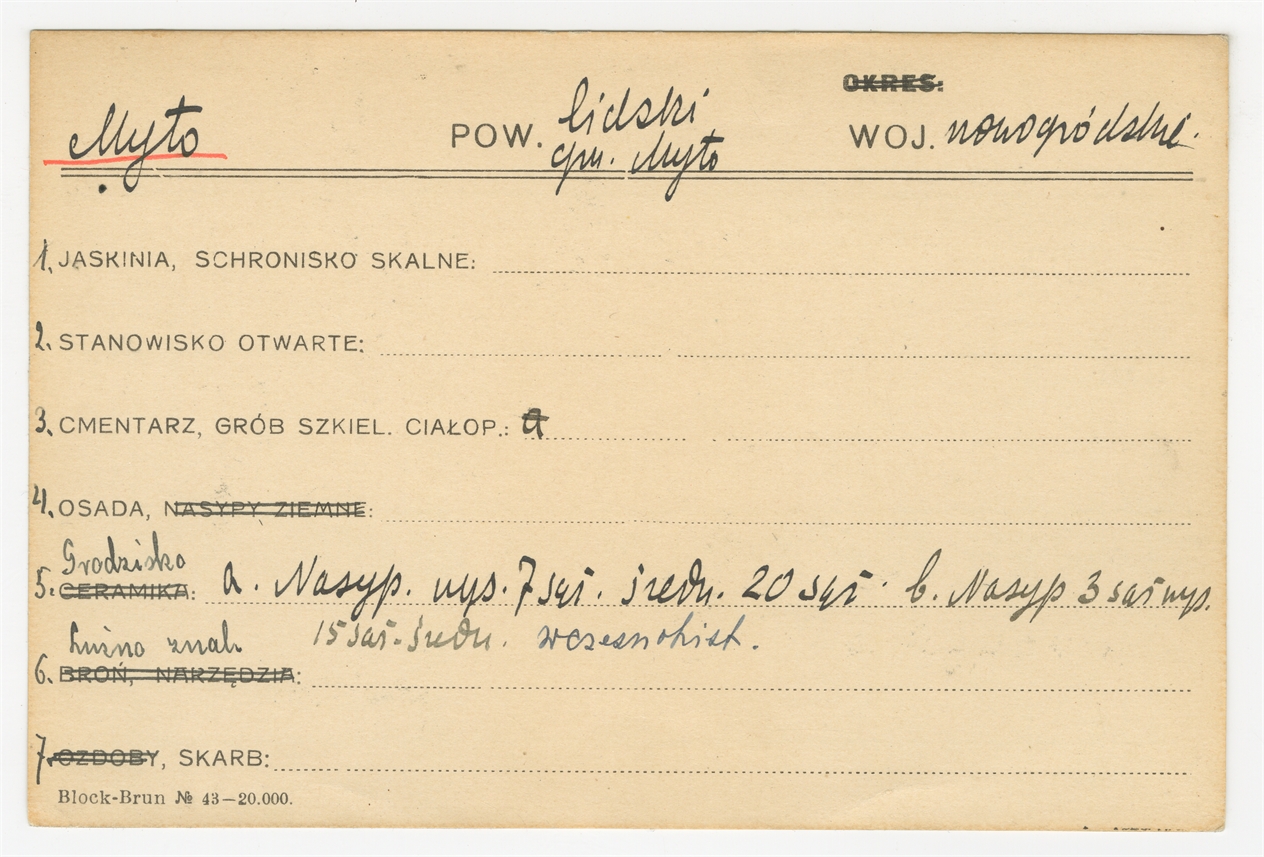 OKRES:
Myto POW. lidzki WOJ. nowogródzkie
gm. Myto
1. JASKINIA, SCHRONISKO SKALNE:
2. STANOWISKO OTWARTE:
3. CMENTARZ, GRÓB SZKIEL. CIAŁOP.: a
4. OSADA, NASYPY ZIEMNE:
Grodzisko
5. CERAMIKA: a. Nasyp. wys. 7 sąż. średn. 20 sąż. b. Nasyp 3 sąż wys.
Luźno znal. 15 sąż. średn. wczesnohist.
6. BROŃ, NARZĘDZIA:
7. OZDOBY, SKARB:
Block-Brun № 43—20.000.